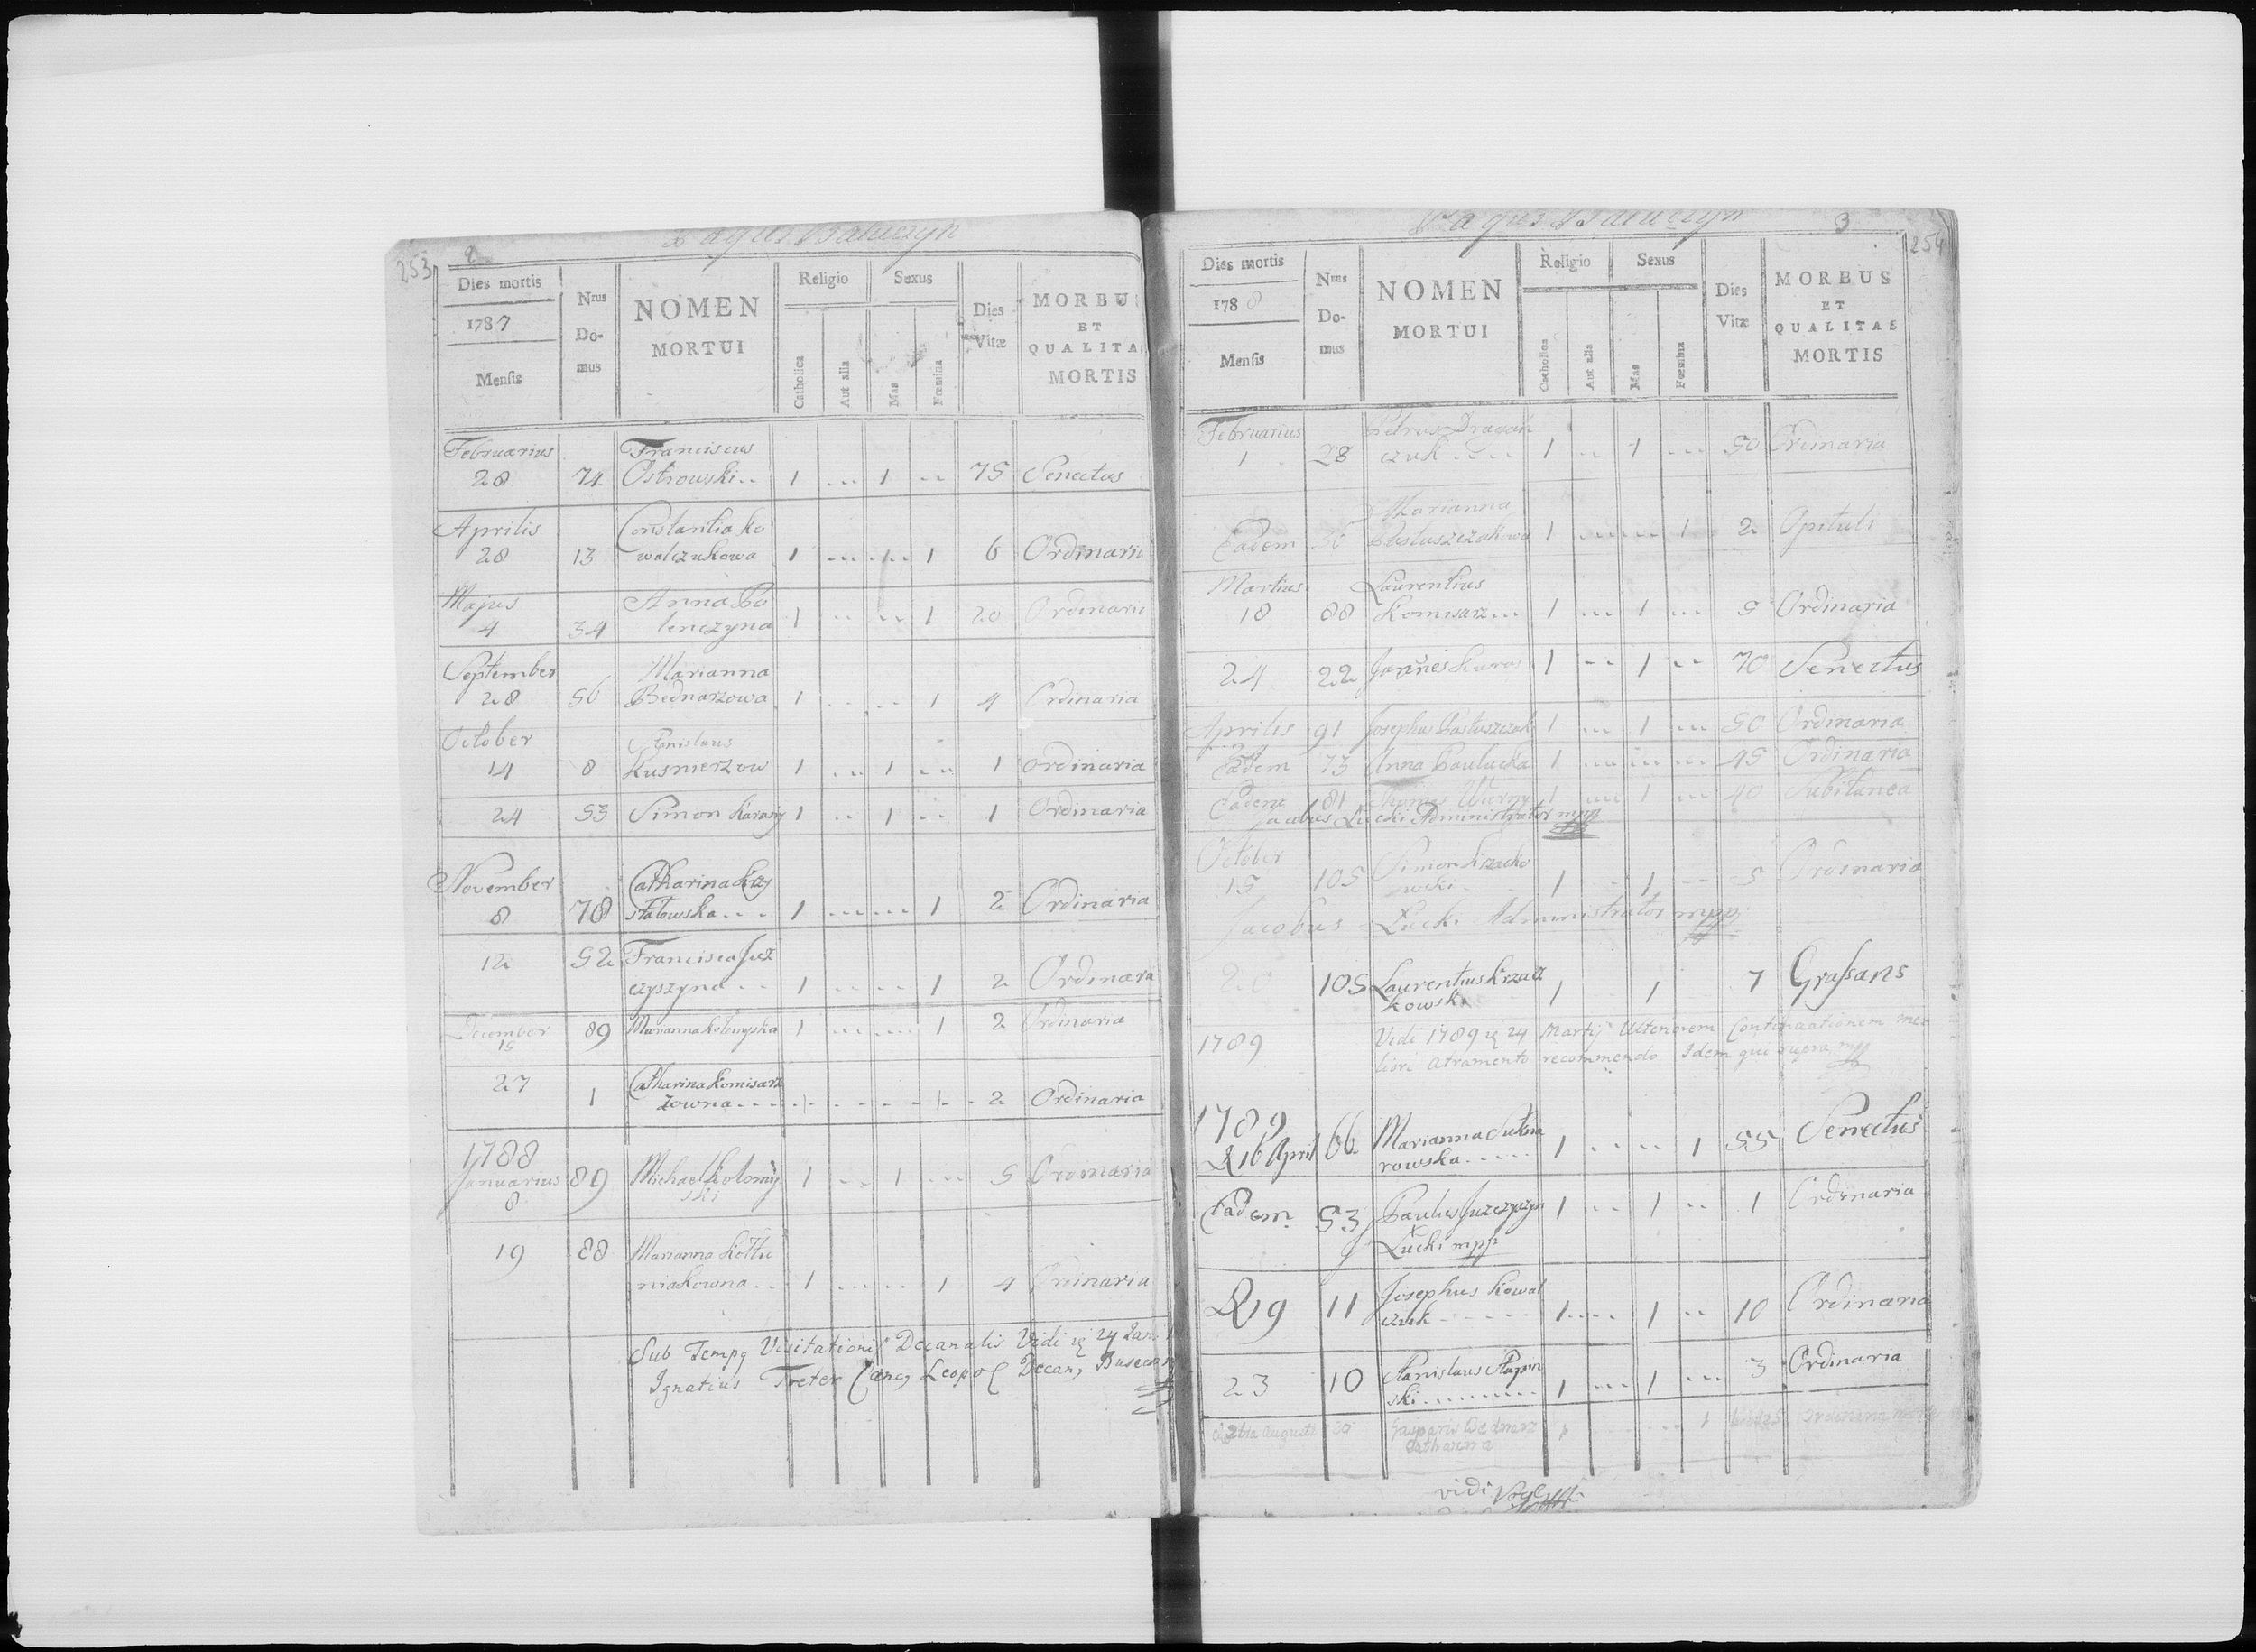 253 2 Pagus Bauczyn
Dies mortis
1787
Mensis
Nrus
Do-
mus
NOMEN
MORTUI
Religio
Catholica
Aut alia
Sexus
Mas
Fœmina
Dies
Vitæ
MORBUS
ET
QUALITA
MORTIS
Februarius Franciscus
28 74 Ostrowski.. 1 ... 1 .. 75 Senectus
Aprilis Constantia Ko
28 13 walczukowa 1 ... ... 1 6 Ordinaria
Majus Anna Bo
4 34 lenczyna 1 .. ... 1 20 Ordinari
September Marianna
28 56 Bednarzowa 1 ... .. 1 4 Ordinaria
October Stanislaus
14 8 Kusnierzow 1 ... 1 ... 1 ordinaria
24 53 Simon Karasij 1 .. 1 .. 1 Ordinaria
November Catharina Krzy
8 78 stalowska... 1 ... ... 1 2 Ordinaria
12 52 Francisca Jusz
czyszyna.. 1 .. .. 1 2 Ordinara
December 89 Marianna Kolomyska 1 ... ... 1 2 Ordinaria
15
27 Catharina Komisarz
1 zowna... 1 ... 1 2 Ordinaria
1788
Januarius 89 Michael Kolomij 1 ... 1 ... 5 Ordinaria
8 ski
19 88 Marianna Koltu
niakowna.. 1 ... .. 1 4 Ordinaria
Sub Temp9 Visitationis Decanalis Vidi 24 Jan
Ignatius Treter Canc, Leopol Decan, Busecen
Pagus Bauczyn 3 254
Dies mortis
1788
Mensis
Nrus
Do-
mus
NOMEN
MORTUI
Religio
Catholica
Aut alia
Sexus
Mas
Fœmina
Dies
Vitæ
MORBUS
ET
QUALITAS
MORTIS
Februarius Petrus Dragań
1 28 czuk.... 1 .. 1 ... 50 Ordinaria
Marianna
Eadem Pastuszczakowa 1 ... ... 1 2
Martius Laurentius
18 88 Komisarz... 1 ... 1 ... 5 Ordinaria
24 22 Joannes Kuras 1 .. 1 .. 70 Senectus
Aprilis 91 Josephus Pastuszczak 1 ... 1 ... 50 Ordinaria
Eadem 73 Anna Paulucka 1 ... ... ... 45 Ordinaria
Eadem 81 Thomas 1 ... 1 ... 40 Subitanea
Jacobus Łucki Administrator mpp
October Simon Krzacko
15 105 wski 1 .. 1 .. 5 Ordinaria
Jacobus Łucki Administrator mpp
20 105 Laurentius Krzacz 1 1 7 Grassans
kowski
1789 Vidi 1789 24 Martij Ulteriorem Continuationem me
liori atramento recommendo Idem qui supra mpp
1789
D 16 April 66 Marianna Sutna 1 .. .. 1 55 Senectus
rowska.....
Eadem 53 Paulus Juszczyszyn 1 .. 1 .. 1 Ordinaria
Łucki mpp
D 19 11 Josephus Kowal
czuk ..... 1 ... 1 .. 10 Ordinaria
23 10 Stanislaus Stapin 3 Ordinaria
ski......... 1 ... 1 ...
Augusti 30 Gasparis Bednarz 1 ordinaria
Catharina
vidi